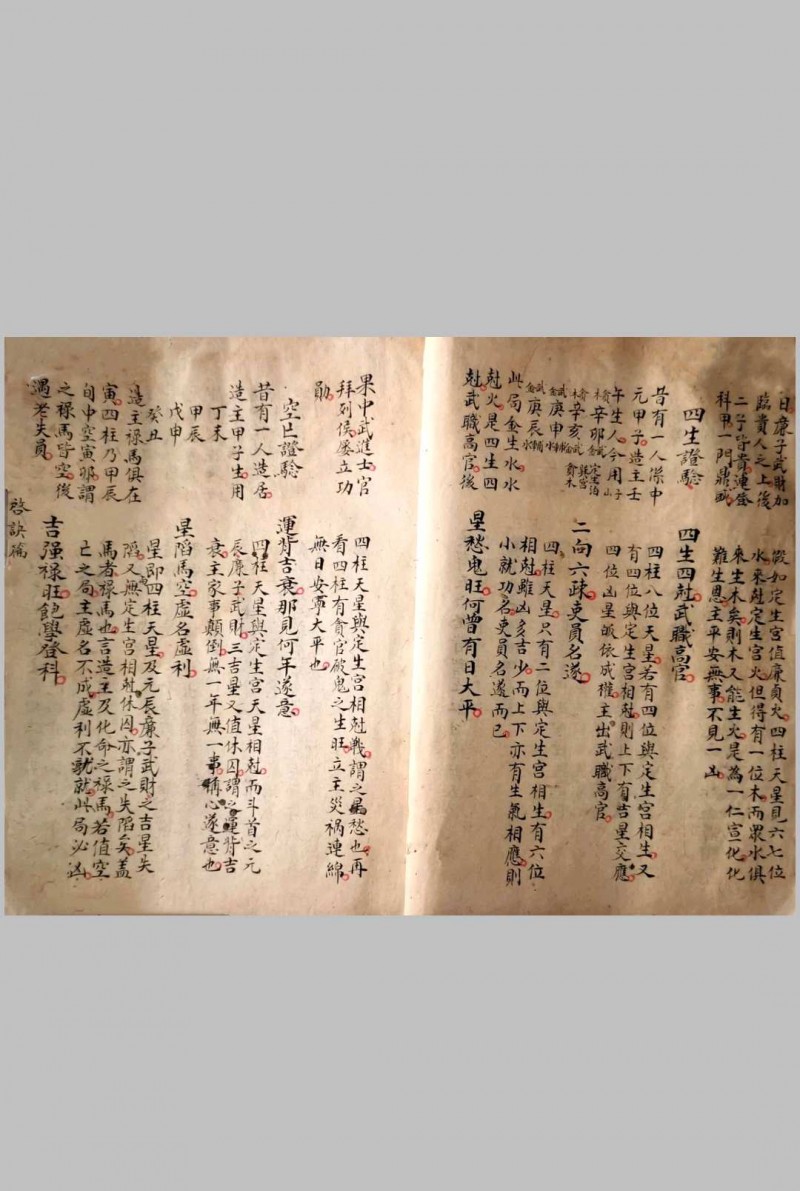 日廉子武財加
臨貴人之上後
二子皆貴連登
科甲一門鼎盛
四生證驗
昔有一人係中
元甲子造主壬
午生人今用子山
辛卯
辛亥
庚申
庚辰
此局金生水水
尅火是四生四
尅武職高官後
假如定生宮值廉貞火四柱天星見六七位
水來尅定生宮火但得有一位木而眾水俱
來生木矣則木又能生火是為一仁宣化化
難生恩主平安無事不見一凶
四生四尅武職高官
四柱八位天星若有四位與定生宮相生又
有四位與定生宮相尅則上下有吉星交應
四位凶星皈依成權主出武職高官
二向六疎吏員名遂
四柱天星只有二位與定生宮相生有六位
相尅雖凶多吉少而上下亦有生氣相應則
小就功名吏員名遂而已
星愁鬼旺何曾有日太平
果中武進士官
拜列侯屡立功
勛
空亡證驗
昔有一人造居
造主甲子生用
丁未
甲辰
戊申
癸丑
造主禄馬俱在
寅四柱乃甲辰
旬中空寅卯謂
之禄馬皆空後
遇老失員
四柱天星與定生宮相尅戰謂之星愁也再
看四柱有貪官破鬼之生旺立主災禍連綿
無日安寧太平也
運背吉衰那見何年遂意
四柱天星與定生宮天星相尅而斗首之元
辰廉子武財三吉星又值休囚謂之運背吉
衰主家事顛倒無一年無一事稱心遂意也
星陷馬空虛名虛利
星即四柱天星及元辰廉子武財之吉星失
陷又無定生宮相尅休囚亦謂之失陷矣蓋
馬者禄馬也言造主及化命之禄馬若值空
亡之局主虛名不成虛利不就此局必凶
吉强禄旺飽學登科
啓訣篇